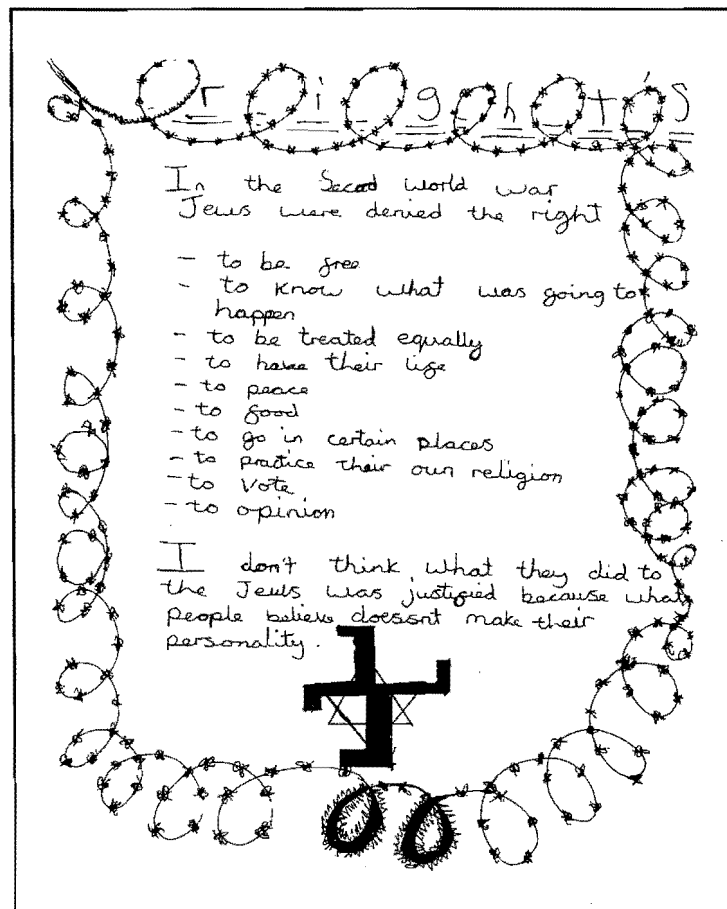 rights
In the Second world war
Jews were denied the right
- to be free
- to know what was going to
happen
- to be treated equally
- to have their life
- to peace
- to food
- to go in certain places
- to practice their own religion
- to vote
- to opinion
I don't think what they did to
the Jews was justified because what
people believe doessnt make their
personality.